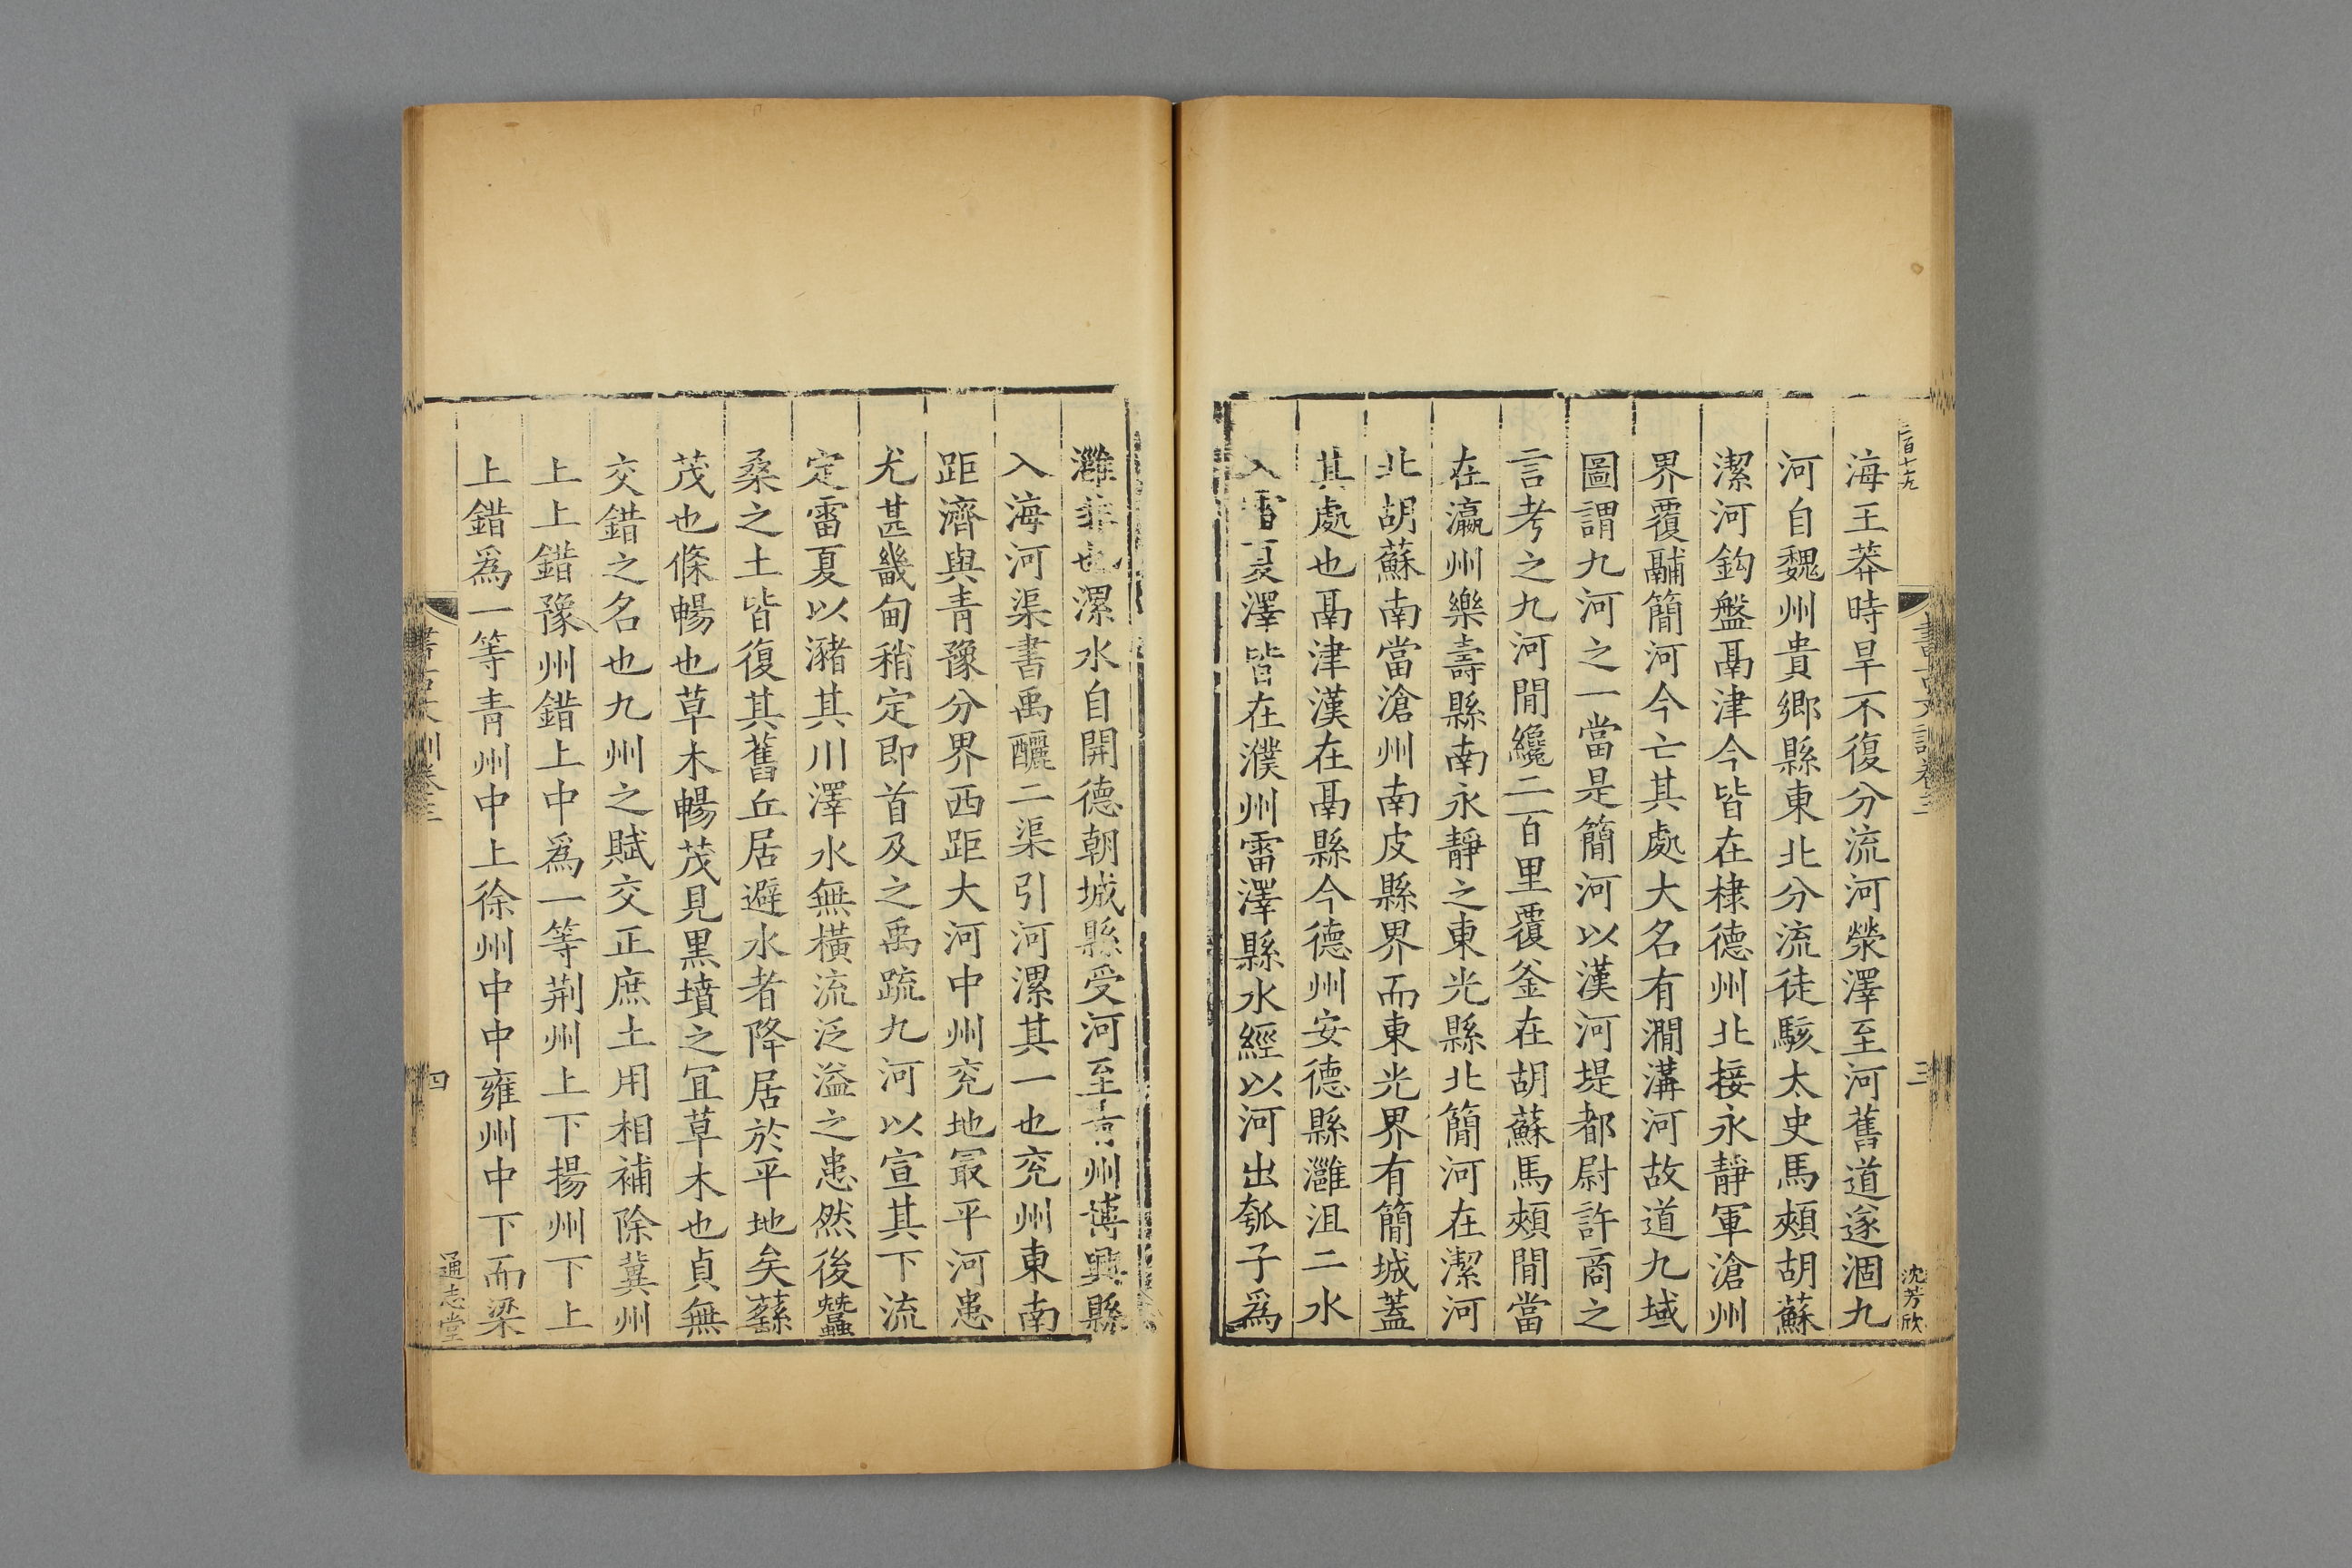 海王莽時旱不復分流河滎澤至河舊道遂涸九
河自魏州貴鄉縣東北分流徒駭太史馬頰胡蘇
潔河鈎盤鬲津今皆在棣德州北接永靜軍滄州
界覆鬴簡河今亡其處大名有澗溝河故道九域
圖謂九河之一當是簡河以漢河堤都尉許商之
言考之九河閒纔二百里覆釜在胡蘇馬頰閒當
在瀛州樂壽縣南永靜之東光縣北簡河在潔河
北胡蘇南當滄州南皮縣界而東光界有簡城蓋
其處也鬲津漢在鬲縣今德州安德縣灉沮二水
入雷夏澤皆在濮州雷澤縣水經以河出瓠子爲
三
沈芳欣
灉非也漯水自開德朝城縣受河至青州博興縣
入海河渠書禹釃二渠引河漯其一也兖州東南
距濟與青豫分界西距大河中州兖地最平河患
尤甚畿甸稍定即首及之禹疏九河以宣其下流
定雷夏以瀦其川澤水無橫流泛溢之患然後蠶
桑之土皆復其舊丘居避水者降居於平地矣蘨
茂也條暢也草木暢茂見黑墳之宜草木也貞無
交錯之名也九州之賦交正庶土用相補除冀州
上上錯豫州錯上中爲一等荆州上下揚州下上
上錯爲一等青州中上徐州中中雍州中下而梁
四
通志堂